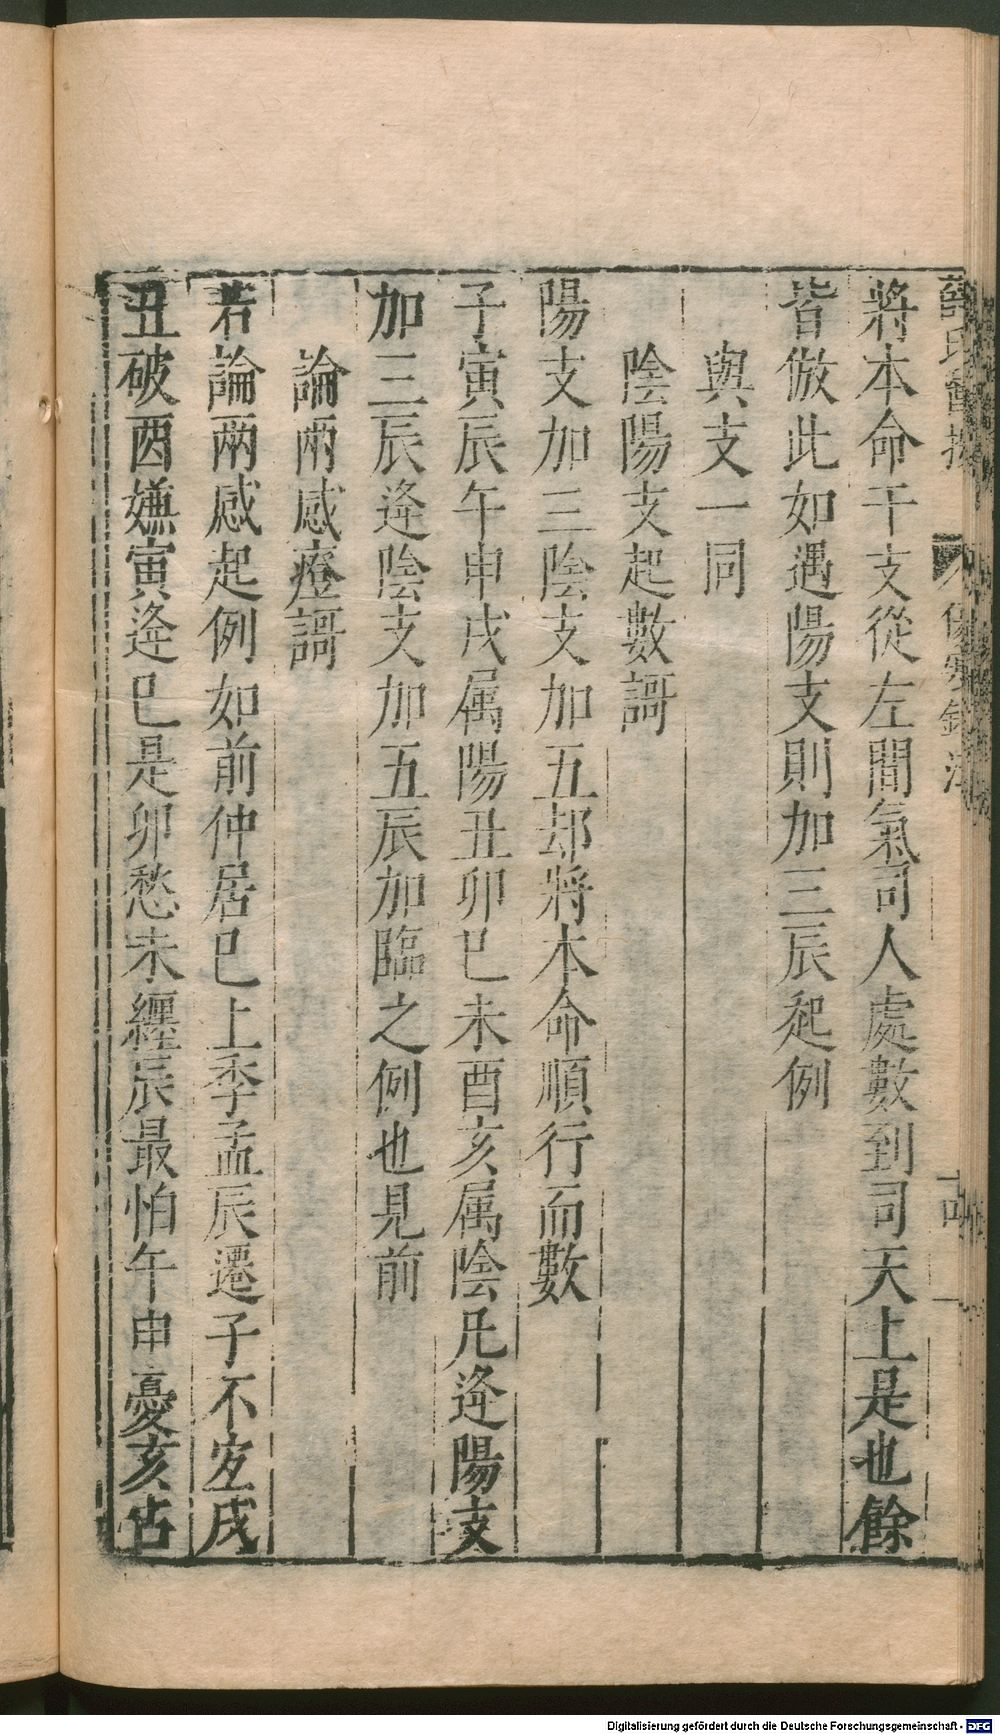 將本命干支從左間氣司人處數到司天上是也餘
皆倣此如遇陽支則加三辰起例
與支一同
陰陽支起數謌
陽支加三陰支加五却將本命順行而數
子寅辰午申戌属陽丑卯巳未酉亥属陰凡逄陽支
加三辰逄陰支加五辰加臨之例也見前
論兩感㾮謌
若論兩感起例如前仲居巳上季孟辰遷子不宐戌
丑破酉嫌寅逄巳是卯愁未纏辰最怕午申憂亥占
Digitalisierung gefördert durch die Deutsche Forschungsgemeinschaft - DFG